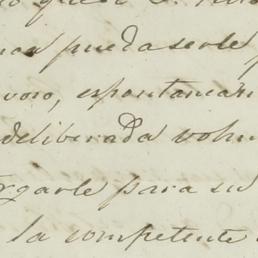 puedaserle
espontanea
deliberada volun
rgarle para su
la competente